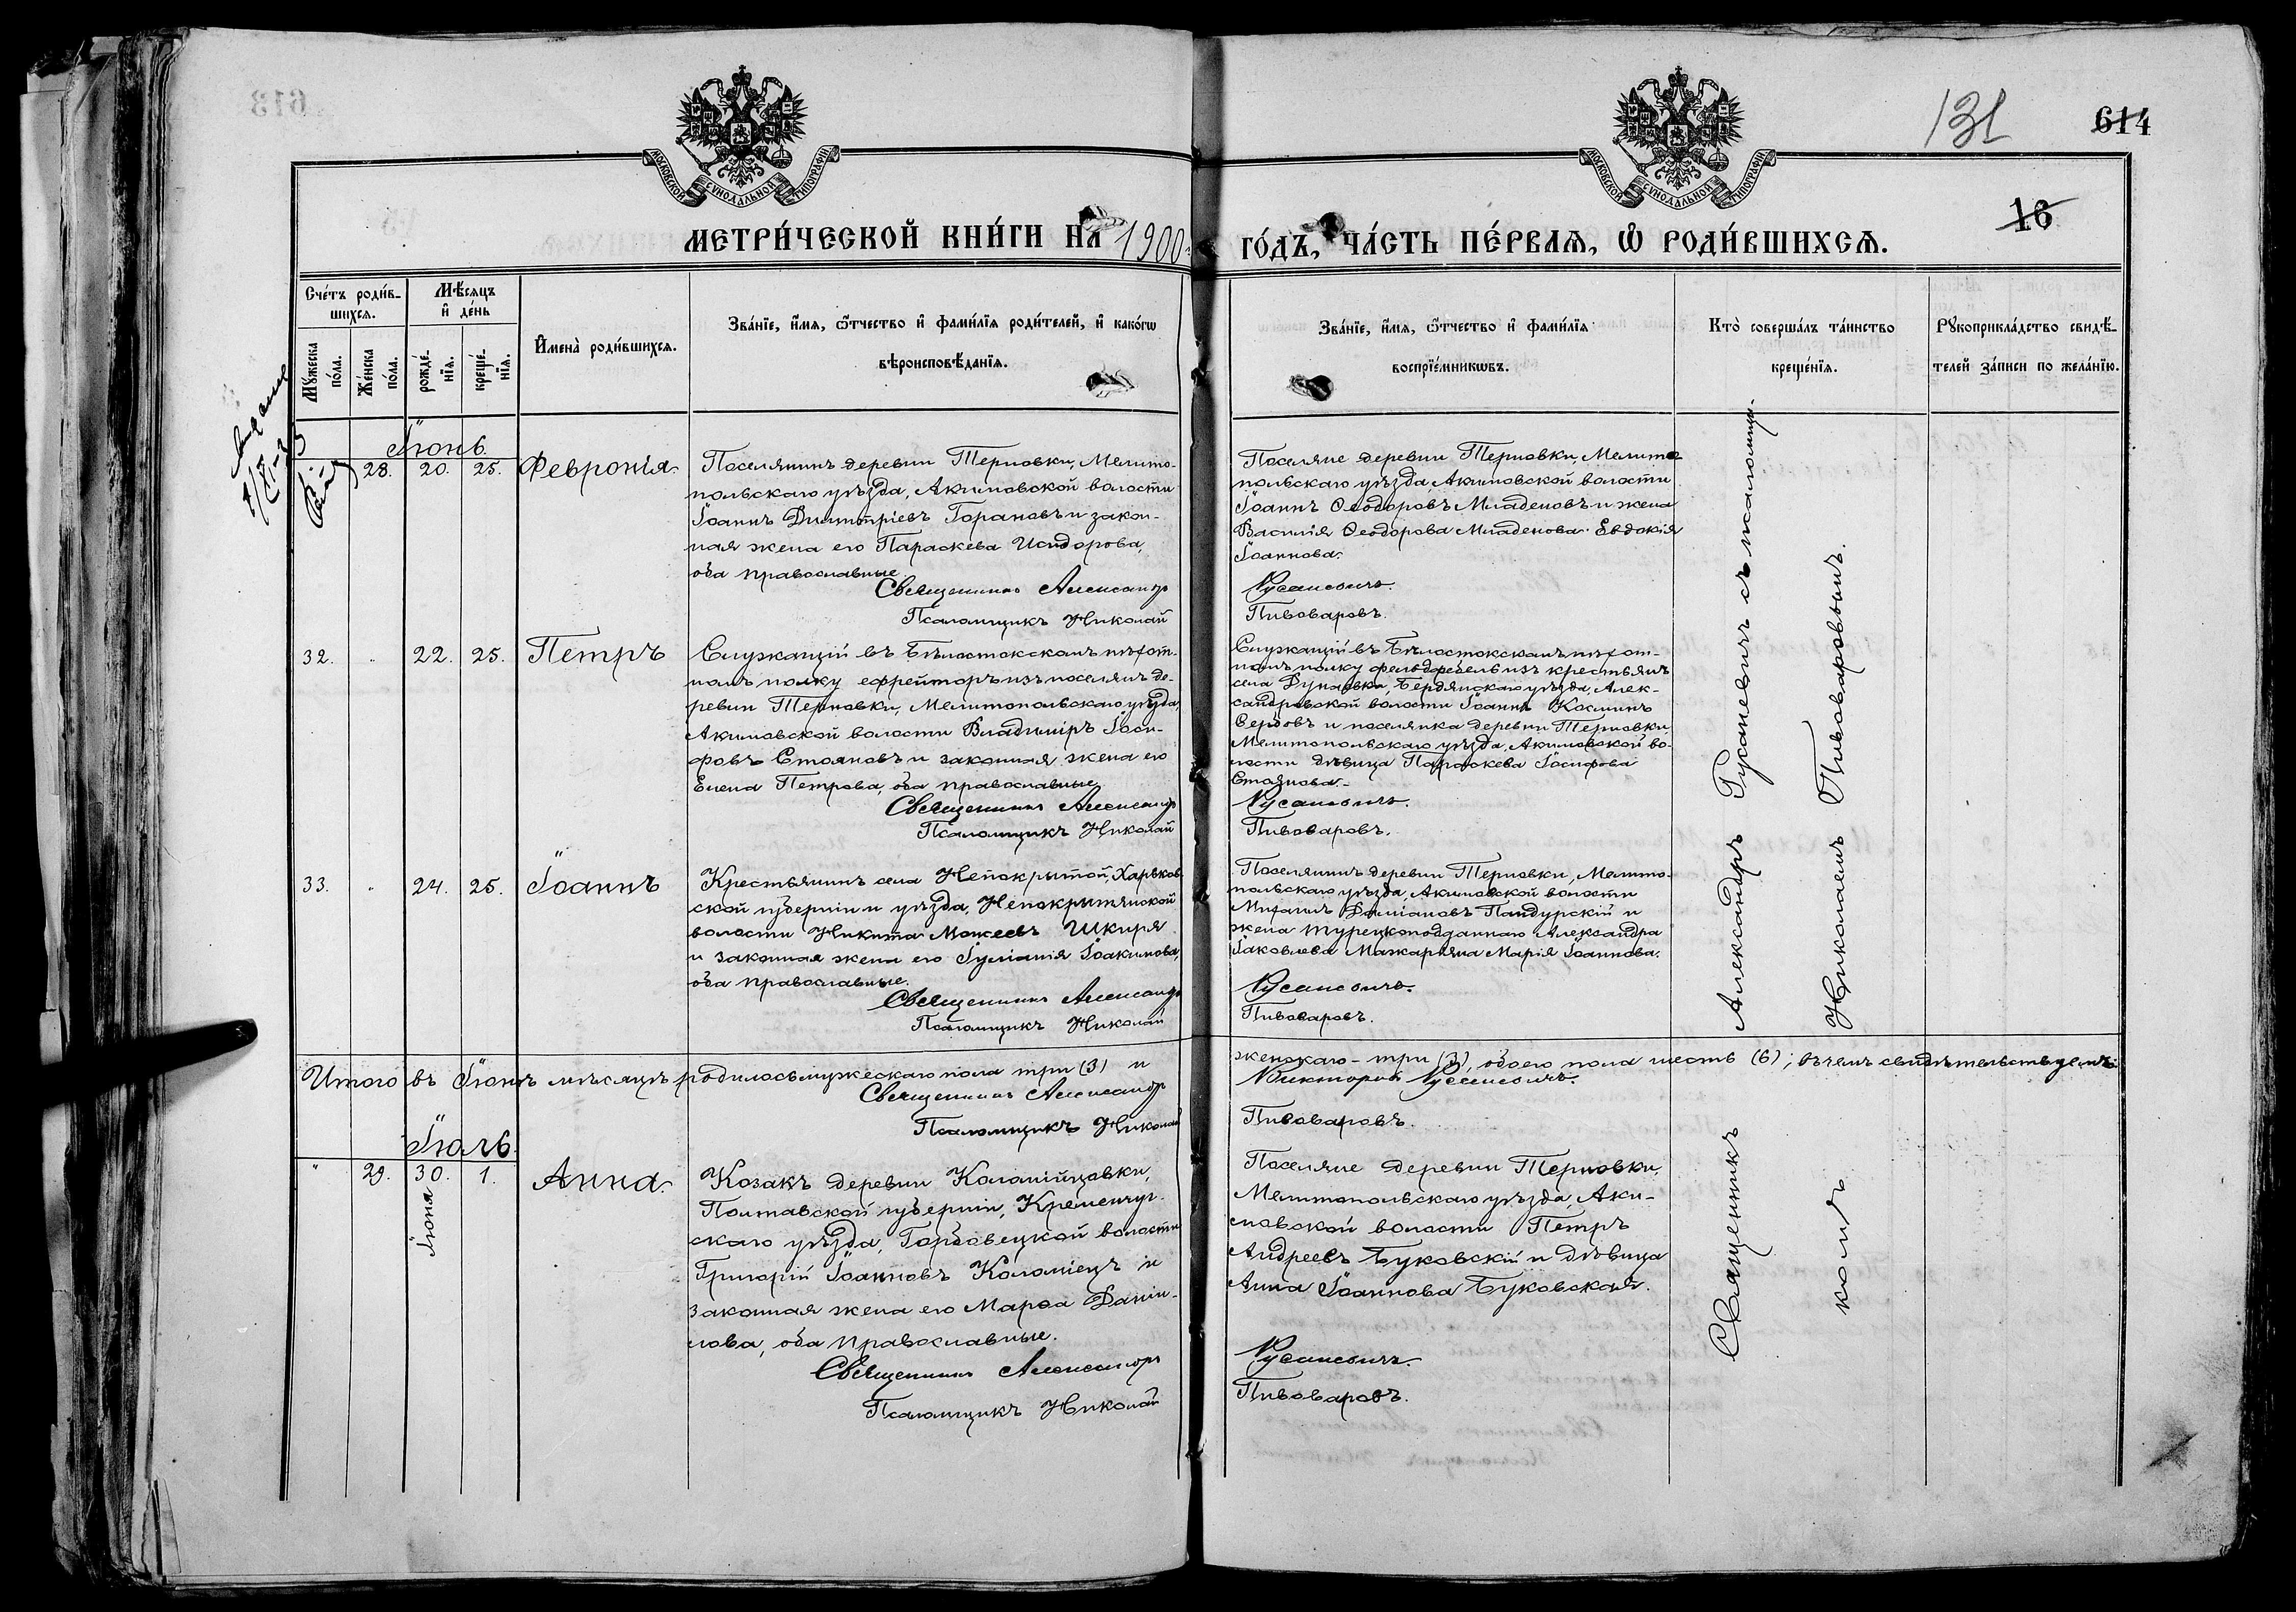 131
614
16
МОСКОВСКОЙ СѴНОДАЛЬНОЙ ТИПОГРАФІИ
МОСКОВСКОЙ СѴНОДАЛЬНОЙ ТИПОГРАФІИ
МЕТРИ́ЧЕСКОЙ КНИ́ГИ НА 1900 г.
ГО́ДЪ, ЧА́СТЬ ПЕ́РВАѦ, Ѡ РОДИ́ВШИХСѦ.
Сче́тъ роди́в-
шихсѧ.
Мꙋ́жеска по́ла.
Же́нска по́ла.
Мѣ́сѧцъ
и҆ де́нь
рожде́-
нїѧ.
креще́-
нїѧ.
И҆мена̀ роди́вшихсѧ.
Зва́нїе, и҆́мѧ, ѻ҆́тчество и҆ фами́лїѧ роди́телей, и҆ како́гѡ
вѣроисповѣ́данїѧ.
Зва́нїе, и҆́мѧ, ѻ҆́тчество и҆ фами́лїѧ
воспрїе́мникѡвъ.
Кто̀ соверша́лъ та́инство
креще́нїѧ.
Рꙋкоприкла́дство свидѣ́-
телей за́писи по жела́нїю.
Іюнь.
28. 20. 25. Февронія.
Поселянинъ деревни Терновки, Мелито-
польскаго уѣзда, Акимовской волости
Іоаннъ Димитріевъ Горановъ и закон-
ная жена его Параскева Исидорова,
оба православные.
Священникъ Александр
Псаломщикъ Николай
Поселяне деревни Терновки, Мелито-
польскаго уѣзда, Акимовской волости
Іоаннъ Ѳеодоровъ Младеновъ и жена
Василія Ѳеодорова Младенова Евдокія
Іоаннова.
Русаневичъ.
Пивоваровъ.
32. " 22. 25. Петръ
Служащій въ Бѣлостокскомъ пѣхот-
номъ полку ефрейторъ изъ поселянъ де-
ревни Терновки, Мелитопольскаго уѣзда,
Акимовской волости Владиміръ Іоси-
фовъ Стояновъ и законная жена его
Елена Петрова, оба православные
Священникъ Александр
Псаломщикъ Николай
Служащій въ Бѣлостокскомъ пѣхот-
номъ полку фельдфебель изъ крестьянъ
села Дунаевки, Бердянскаго уѣзда, Алек-
сандровской волости Іоаннъ Косминъ
Сербовъ и поселянка деревни Терновки,
Мелитопольскаго уѣзда, Акимовской во-
лости дѣвица Параскева Іосифова
Стоянова.
Русаневичъ.
Пивоваровъ.
33. " 24. 25. Іоаннъ
Крестьянинъ села Непокрытой, Харьков-
ской губерніи и уѣзда, Непокрытянской
волости Никита Моисеевъ Шкиря
и законная жена его Іуліанія Іоакимова,
оба православные.
Священникъ Александр
Псаломщикъ Николай
Поселянинъ деревни Терновки, Мелито-
польскаго уѣзда, Акимовской волости
Михаилъ Даміановъ Пандурскій и
жена турецкоподданнаго Александра
Іаковлева Макаряна Марія Іоаннова.
Русаневичъ.
Пивоваровъ.
Итого въ Іюнѣ мѣсяцѣ родилось мужескаго пола три (3) и
женскаго – три (3), обоего пола шесть (6); въ чемъ свидѣтельствуемъ:
Священникъ Александр
Викторовъ Русаневичъ.
Псаломщикъ Николай
Пивоваровъ.
Іюль.
" 29. 30. 1. Анна.
Іюня
Козакъ деревни Коломійцовки,
Полтавской губерніи, Кременчуг-
скаго уѣзда, Горбовецкой волости
Григорій Іоанновъ Коломіецъ и
законная жена его Марѳа Даніи-
лова, оба православные.
Священникъ Александръ
Псаломщикъ Николай
Поселяне деревни Терновки,
Мелитопольскаго уѣзда, Аки-
мовской волости Петръ
Андреевъ Буковскій и дѣвица
Анна Іоаннова Буковская.
Русаневичъ.
Пивоваровъ.
Священникъ Александръ Русаневичъ съ псаломщи-
комъ Николаемъ Пивоваровымъ.